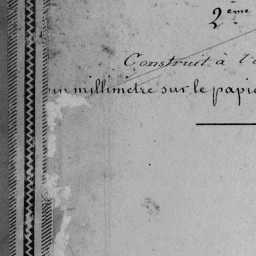 2ème
Construit à l'
un millimètre sur le papi